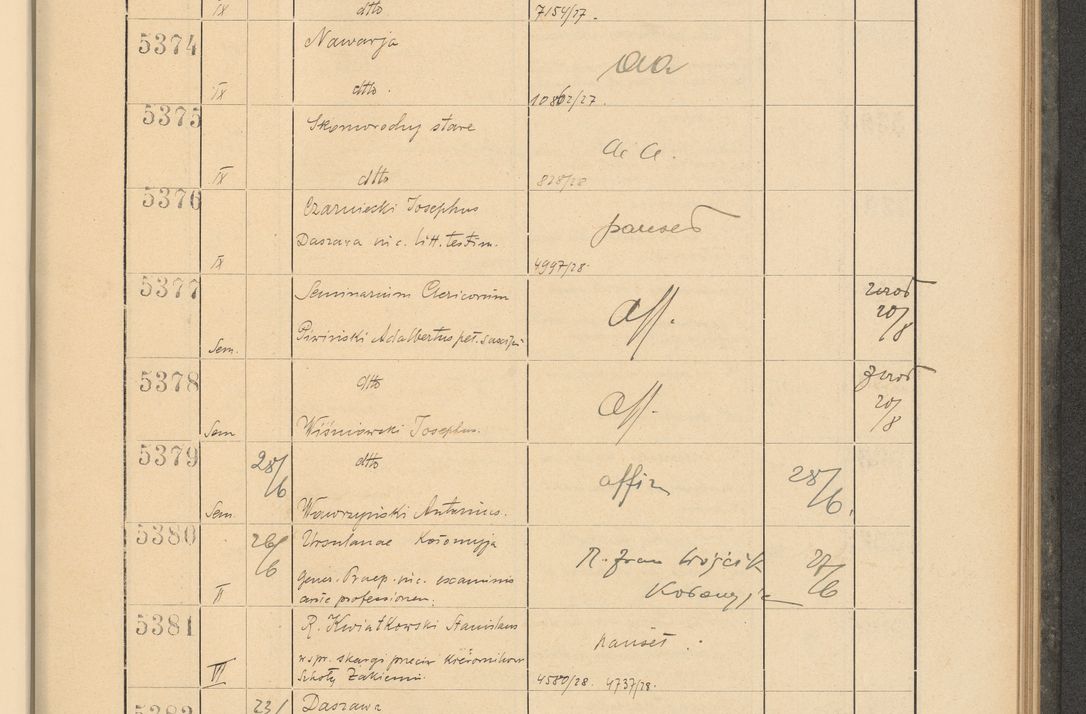 IX dtto 7154/27.
5374 Nawarja aa
IX dtto. 10862/27.
5375 Skomorochy stare a a.
IX dtto 828/28
5376 Czarniecki Josephus
Daszawa nic. litt. testim.
IX 4997/28.
5377 Seminarium Clericorum Aff. zwrot 20/8
Sem. Piwiński Adalbertus pet.
5378 dtto Aff. zwrot 20/8
Sem Wiśniowski Josephus.
5379 28/6 dtto affirm 28/6.
Sem. Wawrzyński Antonius.
5380 26/6 Ursulanae Kołomyja R. Fran Wójcik 27/6
gener. Praep. nic. examinis Kołomyja
II ante professionem.
5381 R. Kwiatkowski Stanislaus
w spr. skargi przeciw
VI Szkoły Żakiemu. 4580/28. 4737/28.
5382 23/ Daszawa